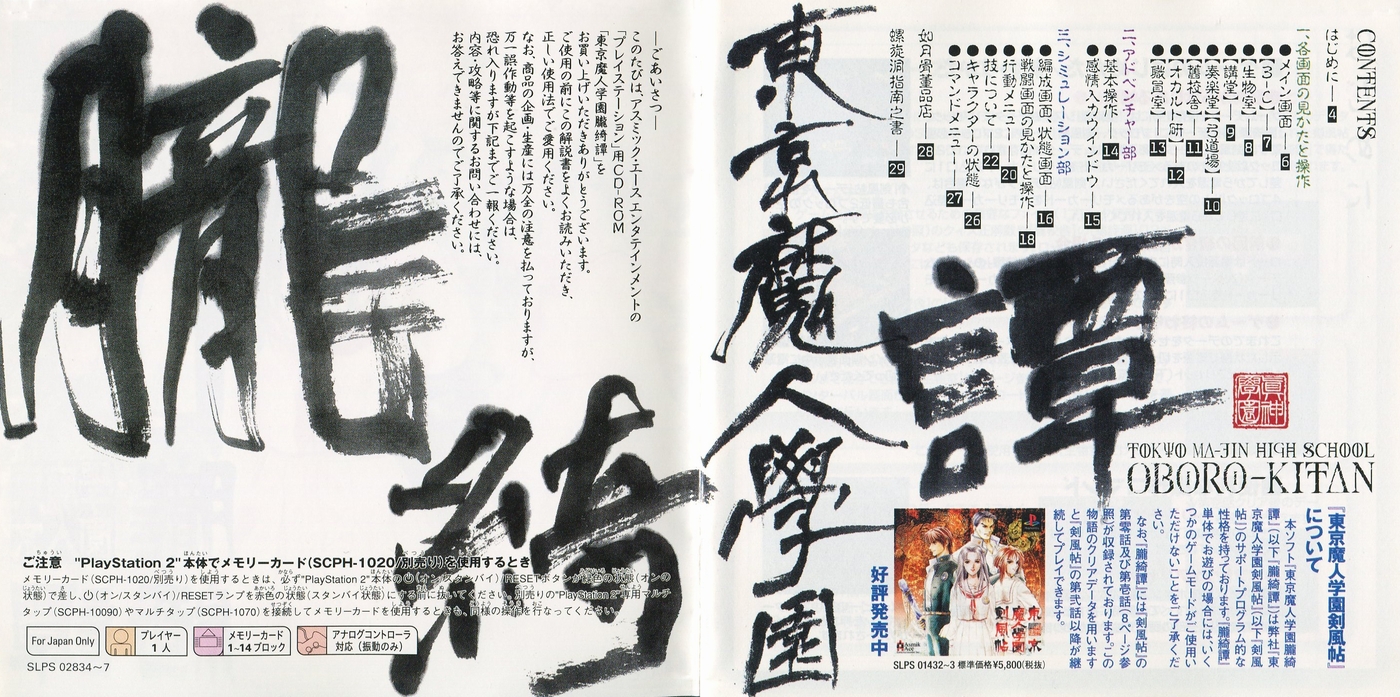 朧綺
―ごあいさつ―
このたびは、アスミック・エース エンタテインメントの
「プレイステーション」用CD-ROM
「東京魔人学園朧綺譚」を
お買い上げいただきありがとうございます。
ご使用の前にこの解説書をよくお読みいただき、
正しい使用法でご愛用ください。
なお、商品の企画・生産には万全の注意を払っておりますが、
万一誤作動等を起こすような場合は、
恐れ入りますが下記までご一報ください。
内容・攻略等に関するお問い合わせには、
お答えできませんのでご了承ください。
ご注意 "PlayStation 2"本体でメモリーカード(SCPH-1020/別売り)を使用するとき
メモリーカード(SCPH-1020/別売り)を使用するときは、必ず"PlayStation 2"本体の⏻(オン/スタンバイ)/RESETボタンが緑色の状態(オンの
状態)で差し、⏻(オン/スタンバイ)/RESETランプを赤色の状態(スタンバイ状態)にする前に抜いてください。別売りの"PlayStation 2"専用マルチ
タップ(SCPH-10090)やマルチタップ(SCPH-1070)を接続してメモリーカードを使用するときも、同様の操作を行なってください。
For Japan Only
プレイヤー
1人
メモリーカード
1~14ブロック
アナログコントローラ
対応(振動のみ)
SLPS 02834~7
CONTENTS
はじめに―4
一、各画面の見かたと操作
●メイン画面―6
●【3-C】―7
●【生物室】―8
●【講堂】―9
●【奏楽堂】【弓道場】―10
●【旧校舎】―11
●【オカルト研】―12
●【霊安室】―13
二、アドベンチャー部
●基本操作―14
●感情入力ウインドウ―15
三、シミュレーション部
●編成画面、状態画面―16
●戦闘画面の見かたと操作―18
●行動メニュー―20
●技について―22
●キャラクターの状態―26
●コマンドメニュー―27
如月骨董品店―28
螺旋洞指南之書―29
東京魔人學園
譚
眞神
學園
TOKYO MA-JIN HIGH SCHOOL
OBORO-KITAN
『東京魔人學園剣風帖』
について
本ソフト『東京魔人學園朧綺
譚』(以下『朧綺譚』)は弊社『東
京魔人學園剣風帖』(以下『剣風
帖』)のサポートプログラム的な
性格を持っております。『朧綺譚』
単体でお遊びの場合には、いく
つかのゲームモードがご使用い
ただけないことをご了承くだ
さい。
なお、『朧綺譚』には『剣風帖』の
第零話及び第壱話(8ページ参
照)が収録されております。この
物語のクリアデータを用います
と『剣風帖』の第弐話以降が継
続してプレイできます。
東京
魔人
學園
剣風帖
SLPS 01432~3 標準価格¥5,800(税抜)
好評発売中